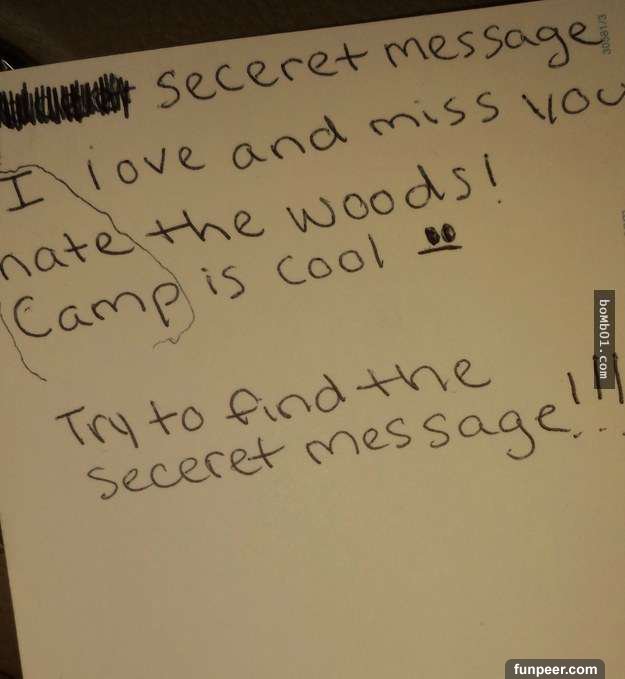 seceret message
I love and miss you
hate the woods!
Camp is cool
Try to find the
seceret message!!!
300581/3
boMb01.com
funpeer.com